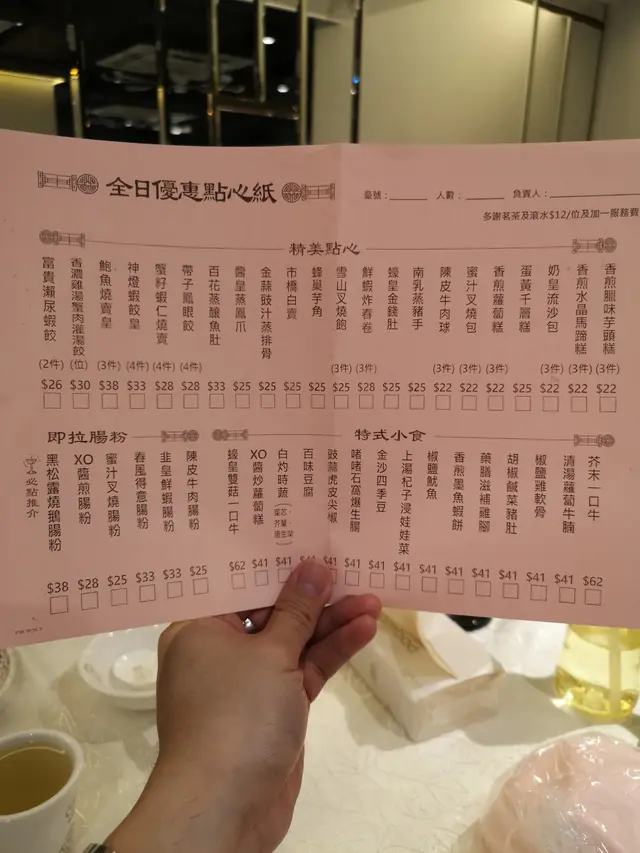 全日優惠點心紙
臺號：
人數：
負責人：
多謝茗茶及滾水$12/位及加一服務費
精美點心
香煎臘味芋頭糕 (3件) $22
香煎水晶馬蹄糕 (3件) $22
奶皇流沙包 (3件) $22
蛋黃千層糕 $25
香煎蘿蔔糕 (3件) $22
蜜汁叉燒包 (3件) $22
陳皮牛肉球 (3件) $22
南乳蒸豬手 $25
蠔皇金錢肚 $25
鮮蝦炸春卷 (3件) $28
雪山叉燒飽 (3件) $25
蜂巢芋角 $25
市橋白賣 $25
金蒜豉汁蒸排骨 $25
醬皇蒸鳳爪 $25
百花蒸釀魚肚 $33
帶子鳳眼餃 (4件) $28
蟹籽蝦仁燒賣 (4件) $28
神燈蝦餃皇 (4件) $33
鮑魚燒賣皇 (3件) $38
香濃雞湯蟹肉灌湯餃 (位) $30
富貴瀨尿蝦餃 (2件) $26
特式小食
芥末一口牛 $62
清湯蘿蔔牛腩 $41
椒鹽雞軟骨 $41
胡椒鹹菜豬肚 $41
藥膳滋補雞腳 $41
香煎墨魚蝦餅 $41
椒鹽魷魚 $41
上湯杞子浸娃娃菜 $41
金沙四季豆 $41
啫啫石窩爆生腸 $41
豉蒜虎皮尖椒 $41
百味豆腐 $41
白灼時蔬 $41
XO醬炒蘿蔔糕 $41
蠔皇雙菇一口牛 $62
即拉腸粉
陳皮牛肉腸粉 $25
韭皇鮮蝦腸粉 $33
春風得意腸粉 $33
蜜汁叉燒腸粉 $25
XO醬煎腸粉 $28
黑松露燒鵝腸粉 $38
必點推介